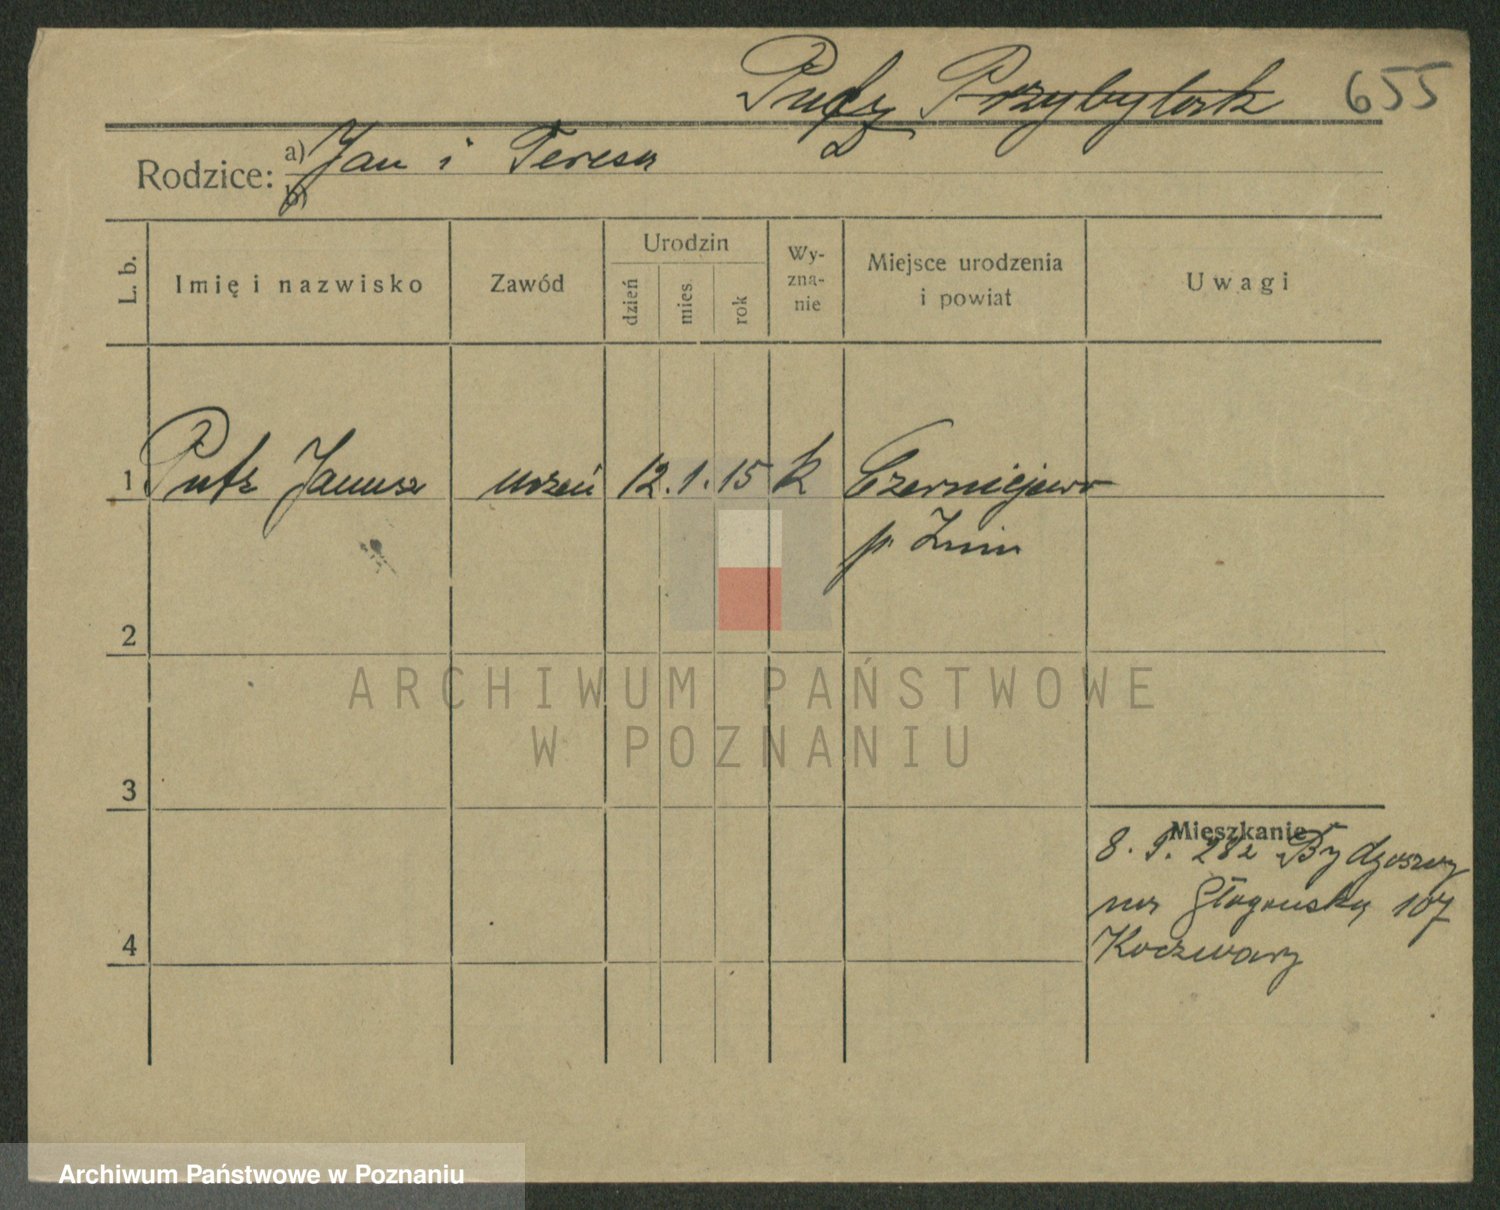 Przybylork 655
Rodzice: a) Jan i Teresa
b)
L. b. Imię i nazwisko Zawód Urodzin dzień mies. rok Wyzna-nie Miejsce urodzenia i powiat Uwagi
1 Putz Janusz uczeń 12. 1. 15 k Czerniejewo
p. Żnin
2
ARCHIWUM PAŃSTWOWE
W POZNANIU
3
Mieszkanie
8. 9. 282 Bydgoszczy
na Głogowską 107
Koczwary
4
Archiwum Państwowe w Poznaniu